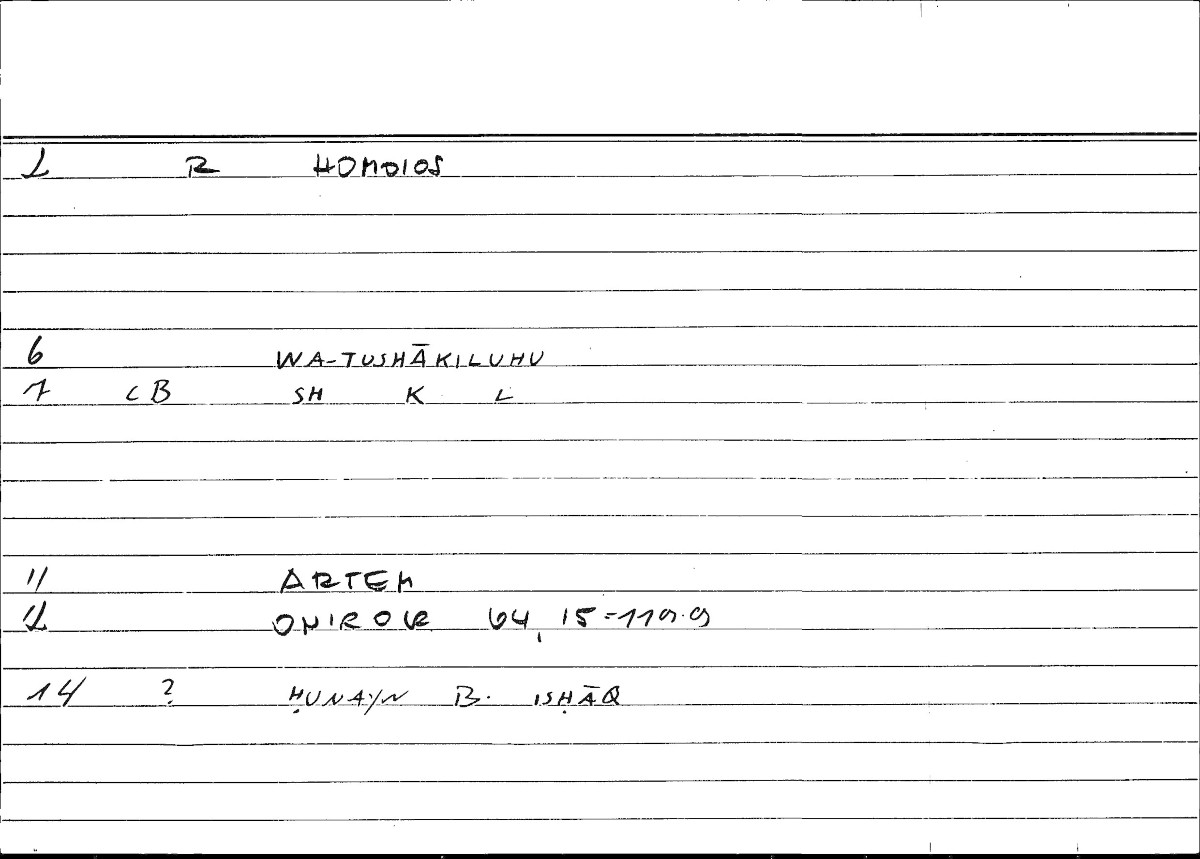 2 R HOMOIOS
6 WA-TUSHĀKILUHU
7 CB SH K L
11 ARTEM
12 ONIROK 64, 15=119.9
14 ? ḤUNAYN B. ISḤĀQ